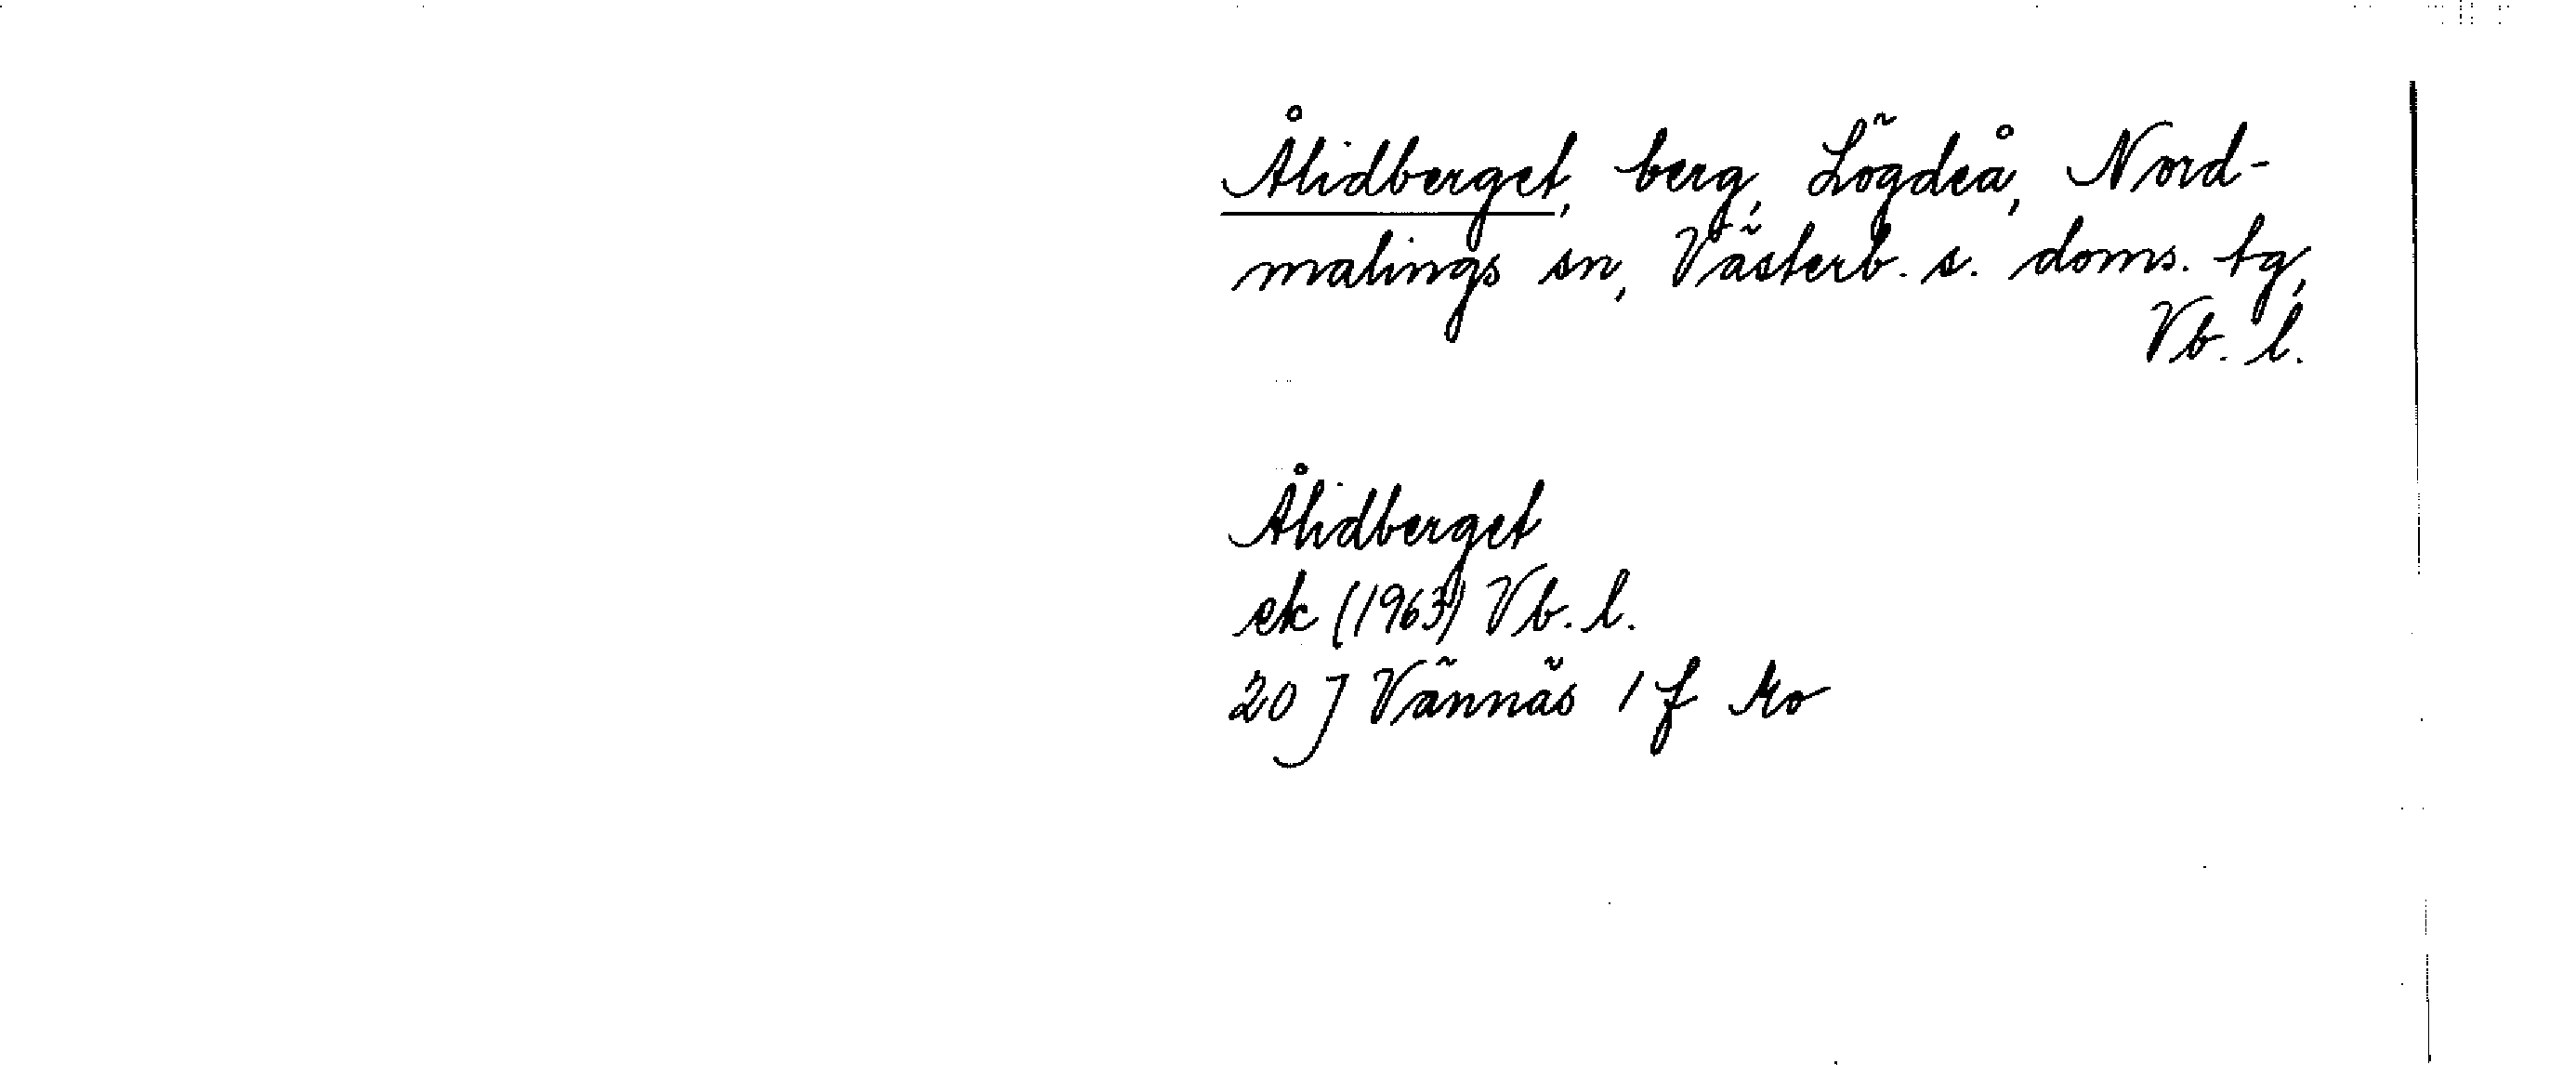 Ålidberget, berg, Lögdeå, Nord-
malings sn, Västerb. s. doms. tg,
Vb. l.
Ålidberget
ek (1963) Vb. l.
20 J Vännäs 1 f Mo